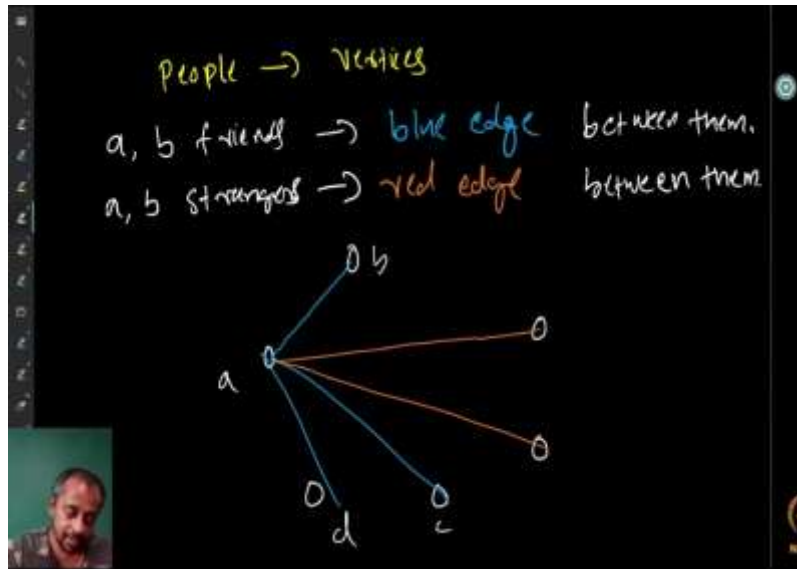 People → vertices
a, b friends → blue edge between them.
a, b strangers → red edge between them
b
a
d
c